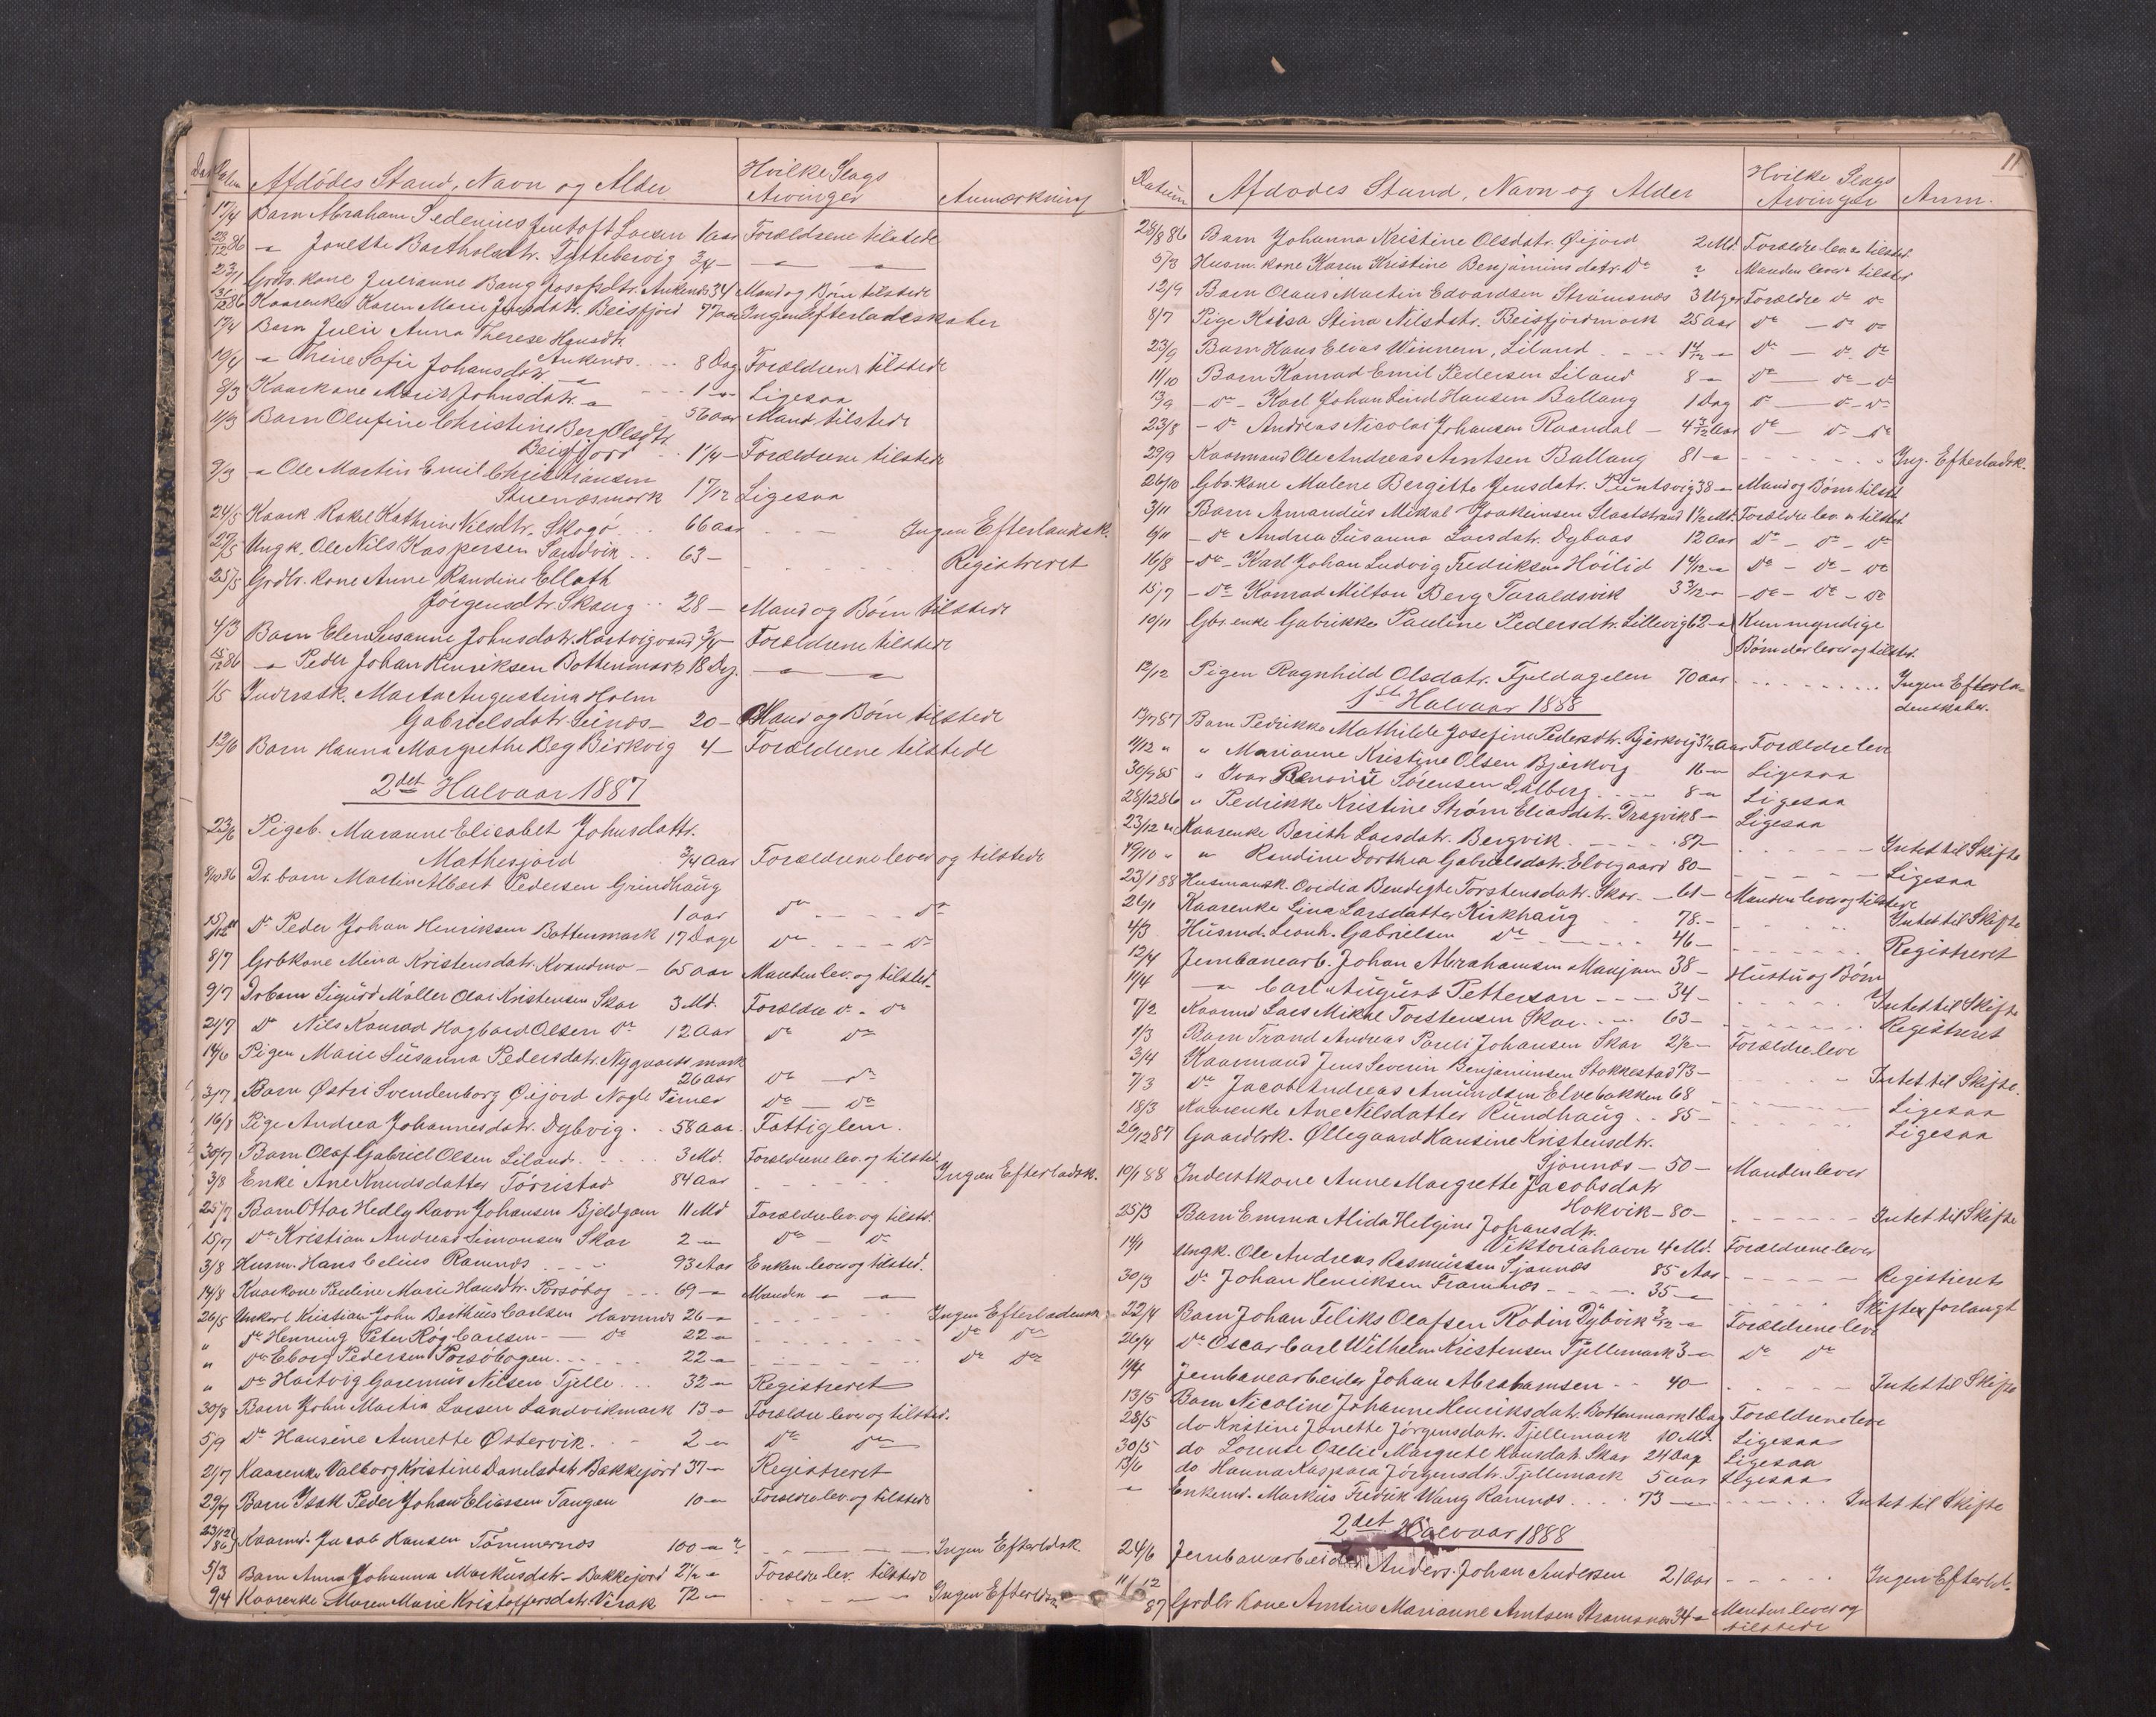 Datum Afdödes Stand, Navn og Alder Hvilke Slags Arvinger Anmærkning
17/4 Barn Abraham Sedenius Jentoft Larsen 1 aar Forældrene tilstede
23/12 86 " Jonette Bartholdtr. Tyttebervig 3/4 — " "
23/1 Grdbr. kone Julianne Bang Josefsdtr. Ankenes 34 Mand og Börn tilstede
31/12 86 Kaarenke Karen Marie Jensdatr. Beisfjord 77 aar Ingen Efterladeskaber
17/4 Barn Julie Anna Therese Hansdtr.
Ankenes 8 Dag Forældrene tilstede
10/4 " Thine Sofie Johansdatr. " 1 " Ligesaa
8/3 Kaarkone Marit Johnsdatr. " 56 aar Mand tilstede
11/3 Barn Olufine Christine Berg Olsdtr.
Beisfjord 1 1/4 — Forældrene tilstede
9/3 " Ole Martin Emil Christiansen
Stuenæsmark 1 7/12 Ligesaa
24/5 Kaark. Rakel Kathrine Nilsdtr. Skogö 66 aar Ingen Efterladsk.
27/5 Ungk. Ole Nils Kaspersen Sandvik 63 — Registreret
25/5 Grdbr. kone Anne Randine Elloth
Jörgensdtr. Skaug 28 — Mand og Börn tilstede
4/3 Barn Elen Susanne Johnsdatr. Hartvigvand 3/4 — Forældrene tilstede
15/12 86 " Peder Johan Henriksen Bottenmark 18 Dg. " "
1/5 Inderstk. Marta Augustina Holm
Gabrielsdatr. Seines 20 — Mand og Börn tilstede
12/6 Barn Hanna Margrethe Beg Birkvig 4 — Forældrene tilstede
2det Halvaar 1887
23/6 Pigeb. Maranne Elisabet Johnsdattr.
Mathesjord 3/4 Aar Forældrene lever og tilstede
8/10 86 Dr. barn Martin Albert Pedersen Grindhaug
1 aar Do Do
15/12 " Do Peder Johan Henriksen Bottenmark 17 Dage Do Do
8/7 Grbkone Mina Kristensdatr. Kvandmo — 65 aar Manden lev. og tilsted.
9/7 Drbarn Sigurd Möller Olai Kristensen Skar 3 Md. Forældre Do Do
21/7 Do Nils Konrad Hagbard Olsen Do 12 Aar Do Do
14/6 Pigen Marie Susanna Pedersdatr. Nygaards mark
26 aar Do — Do
3/7 Barn Østri Svendenborg Øijord Nogle Timer Do — Do
16/8 Pige Andrea Johannesdatr. Dybvig 58 aar. Fattiglem.
30/7 Barn Olaf Gabriel Olsen Liland 3 Md. Forældrene lev. og tilsted
3/8 Enke Ane Knudsdatter Torristad 84 aar Ingen Efterladsk.
25/7 Barn Ottar Hedly Ravn Johansen Bjeldgam 11 Md Forældre lev. og tilsted.
15/7 Do Kristian Andreas Simonsen Skar 2 " Do — Do
3/8 Husm. Hans Celius Ramnes 93 Aar Enken lever og tilsted.
14/8 Kaarkone Pauline Marie Hansdtr. Porsöbog 69 " Manden " "
26/5 Unkarl Kristian John Berthus Carlsen Havnnes 26 " Ingen Efterladensk.
" Do Henning Peter Rög Carlsen — Do 22 " Do Do
" Do Eborg Pedersen Porsöbogen 22 " Do Do
" Do Hartvig Garenius Nilsen Tjelle 32 " Registreret
30/8 Barn John Martin Larsen Sandvikmark 13 " Forældre lever og tilsted.
5/9 Do Hansine Annette Østervik. 2 " Do Do
21/7 Kaarenke Valborg Kristine Danelsdatr. Bakkejord 37 " Registreret
29/7 Barn Isak Peder Johan Eliassen Tangen 10 " Forældre lev. og tilstede
23/12 86 Kaarmd. Jacob Hansen Tömmernes 100 " ? Ingen Efterldsk.
5/3 Barn Anna Johanna Markusdatr. Bakkejord 2 1/2 " Forældre lev. tilstede
9/4 Kaarenke Maren Marie Kristoffersdatr. Virak 72 " Ingen Efterldsk.
11
Datum Afdødes Stand, Navn og Alder Hvilke Slags Arvinger Anm.
28/8 86 Barn Johanna Kristine Olsdatr. Øijord 2 Md. Forældre lev. " tilsted.
5/8 Husm. kone Karen Kristine Benjaminsdatr. Do ? Manden lever " tilsted
12/9 Barn Olaus Martin Edvardsen Strömsnes 3 Uger Forældre Do Do
8/7 Pige Kaisa Stina Nilsdatr. Beisfjordmark 25 Aar Do — Do Do
23/9 Barn Hans Elias Winnem, Liland 1 4/12 " Do — Do. Do
11/10 Barn Konrad Emil Pedersen Liland 8 " Do — Do — Do
13/9 — Do — Karl Johan Lind Hansen Ballang 1 Dag Do — Do — Do
23/8 — Do Andreas Nicolai Johansen Raandal — 4 5/12 Aar Do — Do — Do
29/9 Kaarmand Ole Andreas Arntsen Ballang 81 " Ing. Efterladsk.
26/10 Gbr. kone Malene Bergitte Jensdatr. Püntsvig 38 " Mand og Börn tilsted
3/11 Barn Amandus Mikal Joakimsen Slaatstrand 1 1/2 Md. Forældre lev. " tilsted
6/11 — Do Andrea Susanna Larsdatr. Dybaas 12 Aar Do — Do — Do
16/8 — Do — Karl Johan Ludvig Fredriksen Höilid 1 4/12 " Do — Do — Do
15/7 — Do Konrad Milton Berg Taraldsvik 3 3/12 " — Do — Do — Do
10/11 Gbr. enke Gabrikke Pauline Pedersdtr. Lillevig 62 " Kun myndige
Börn der lever og tilsted.
12/12 Pigen Ragnhild Olsdatr. Fjeldagelen 70 aar Ingen Efterla-
denskaber.
1ste Halvaar 1888
13/7 87 Barn Pedrikke Mathilde Josefine Pedersdtr. Bjerkvig 3 1/2 Aar Forældre leve
11/12 " " Marianne Kristine Olsen Bjerkvig 16 " Ligesaa
30/9 85 " Ivar Benoni Sörensen Dalberg 8 " Ligesaa
28/12 86 " Pedrikke Kristine Ström Eliasdatr. Dragvik 8 — Ligesaa
23/12 " Kaarenke Berith Larsdatr. Bergvik 87 — Intet til Skifte
19/10 " " Randine Dorthea Gabrielsdatr. Elvegaard 80 — Ligesaa
23/1 88 Husmansk. Ovidia Bendigte Torstensdatr. Skar — 61 — Manden lever og tilstede
26/1 Kaarenke Lina Larsdatter Kirkhaug 78. — Intet til Skifte
4/3 Husmd. Leonh. Gabrielsen Do 46 — Registreret
12/4 Jernbanearb. Johan Abrahamsen Maugnen 38 — Hustru og Börn
11/4 " Carl August Petterson 34 — Intet til Skifte
7/2 Kaarmd Lars Mikal Torstensen Skar 63 — Registreret
1/3 Barn Trand Andreas Pareli Johansen Skar 2 1/2 — Forældre leve
3/4 Kaarmand Jens Severin Benjaminsen Stokkestad 73 — Intet til Skifte.
7/3 Do Jacob Andreas Amundsen Elvebakken 68 Ligesaa
18/3 Kaarenke Ane Nilsdatter Rundhaug 85 — Ligesaa
26/12 87 Gaardbrk. Øllegaard Hansine Kristensdtr.
Sjonnes — 50 — Manden lever
10/1 88 Inderstkone Anne Margrette Jacobsdatr
Hokvik — 80 — Intet til Skifte
25/3 Barn Emma Alida Helgine Johansdtr.
Viktoriahavn 4 Md. Forældrene lever
14/1 Ungk. Ole Andreas Rasmussen Sjonnes 85 Aar Registreret
30/3 Do Johan Henriksen Framnes 35 " Skifte forlangt
22/4 Barn Johan Feliks Olafsen Rodin Dybvik 3/12 " Forældrene leve
26/4 Do Oscar Carl Wilhelm Kristensen Tjellemark 3 " Do Do
11/4 Jernbanearbeider Johan Abrahamsen 40 — Intet til Skifte
13/5 Barn Nicoline Johanne Henriksdatr. Bottenmark 1 Dag Forældrene leve
28/5 do Kristine Jonette Jörgensdatr. Tjellemark 10 Md. Ligesaa
30/5 do Lorentse Ozelie Margrete Hansdatr. Skar 24 Dag Ligesaa
13/6 do Hanna Kaspara Jörgensdtr. Tjellemark 5 aar Ligesaa
" Enkemd. Markus Fredrik Wang Ramnes 73 — Intet til Skifte
2det Halvaar 1888
24/6 Jernbanarbeider Anders Johan Andersen 21 Aar Ingen Efterld.
11/12 87 Grdbr Kone Arntine Marianne Arntsen Stromsnes 34 " Manden lever og
tilstede